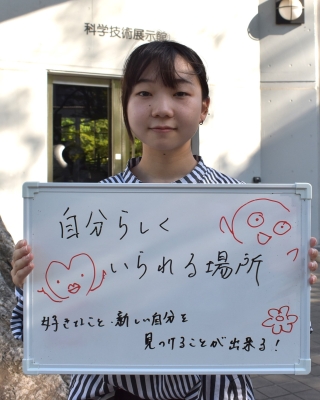 科学技術展示館
自分らしく
いられる場所
好きなこと・新しい自分を
見つけることが出来る！